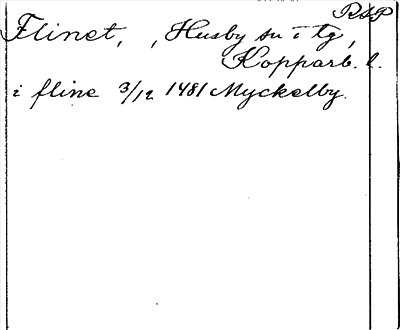 RSP
Flinet, , Husby sn i tg,
Kopparb. l.
i fline 3/12 1481 Myckelby.